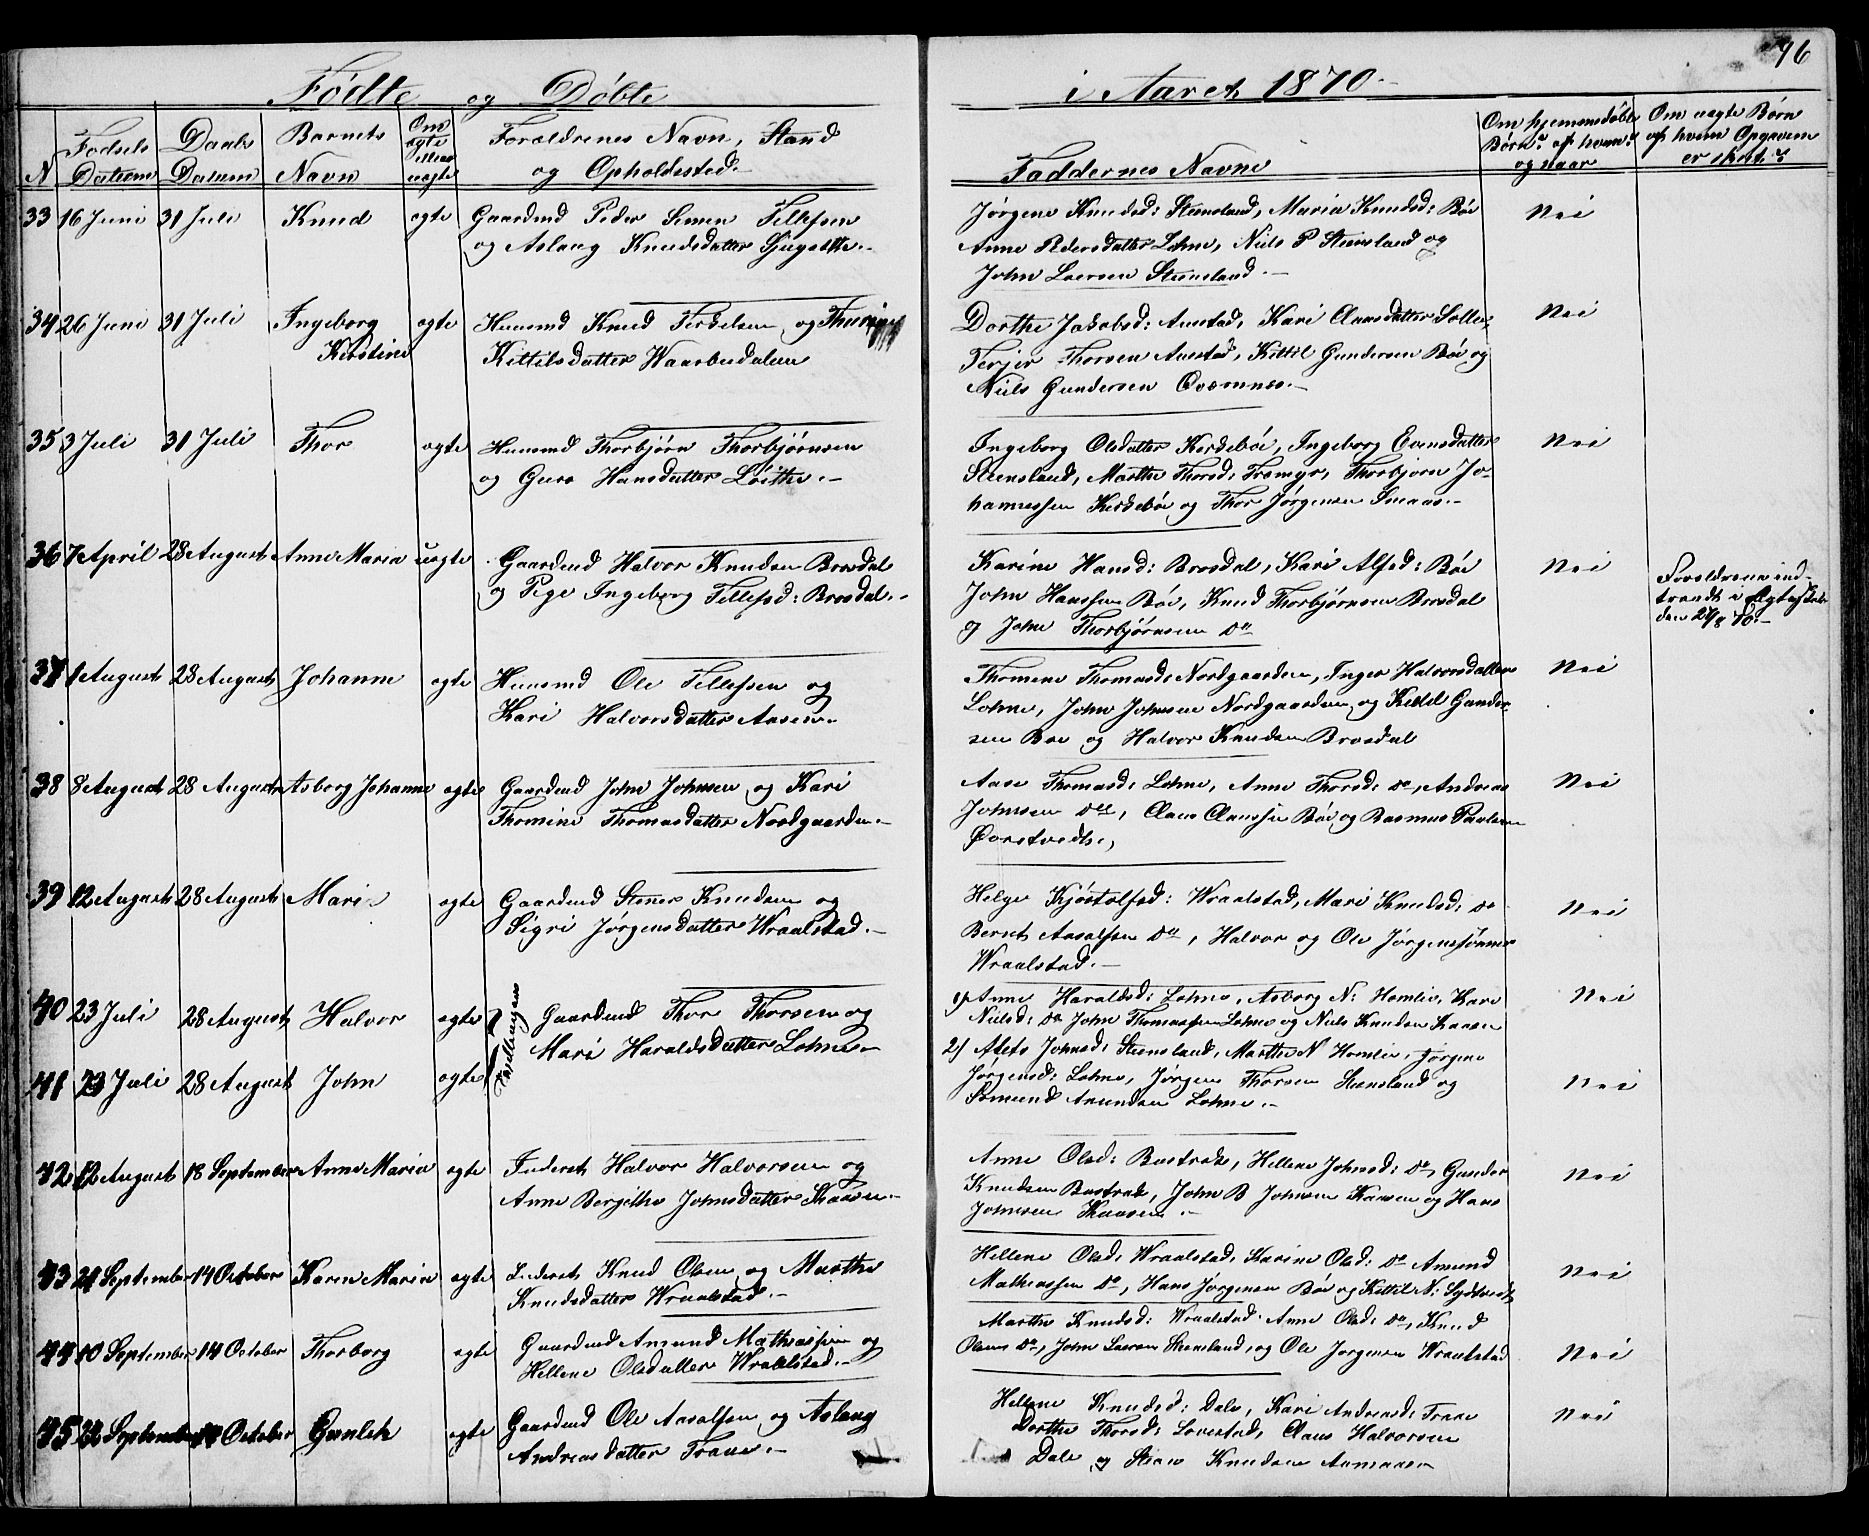 96
Fødte og Døbte i Aaret 1870.
N
Fødsels Datum
Daabs Datum
Barnets Navn
Om ægte eller uægte
Forældrenes Navn, Stand og Opholdssted.
Faddernes Navne
Om hjemmedøbte Børn? af hvem? og naar
Om uægte Børn af hvem Opgaven er skeet?
33 16 Juni 31 Juli Knud ægte Gaardmd Peder Simen Tellefsen
og Aslaug Knudsdatter
Jørgine Knudsd: Steensland, Maria Knudsd: Bøe
Anne Pedersdatter Lohne, Niels P Steensland og
John Larsen Steensland.
Nei
34 26 Juni 31 Juli Ingeborg Kirstine ægte Huusmd Knud Terkelsen og
Kittilsdatter
Dorthe Jakobsd: Aaestad, Kari Clausdatter
Terjer Thorsen Aaestad, Kittil Gundersen Bøe og
Niels Gundersen
Nei
35 3 Juli 31 Juli Thor ægte Huusmd Thorbjørn Thorbjørnsen
og Guro Hansdatter Løithe.
Ingeborg Olsdatter Kirkebøe, Ingeborg Evensdatter
Steensland, Marthe Thorsd: Tromyr, Thorbjørn Jo-
hannessen Kirkebøe og Thor Jørgensen
Nei
36 7 April 28 August Anne Maria uægte Gaardmd Halvor Knudsen Brosdal
og Pige Ingeborg Tellefsd: Brosdal.
Karine Hansd: Brosdal, Kari Alfsd: Bøe
John Hanssen Bøe, Knud Thorbjørnsen Brosdal
og John Thorbjørnsen Do
Nei
Forældrene ind-
traadt i Ægteskab
den 28/8 70.
37 1 August 28 August Johanne ægte Huusmd Ole Tellefsen og
Kari Halvorsdatter Aasen.
Thomine Thomasd: Nordgaarden, Inger Halvorsdatter
Lohne, John Johnsen Nordgaarden, og Kittil Gunder-
sen Bøe og Halvor Knudsen Brosdal
Nei
38 8 August 28 August Asborg Johanne ægte Gaardmd John Johnsen og Kari
Thomine Thomasdatter Nordgaarden.
Aase Thomasd: Lohne, Anne Thorsd: Do, Andreas
Johnsen Do, Claus Claussen Bøe og Rasmus Paulsen
Ørstvedt,
Nei
39 12 August 28 August Mari ægte Gaardmd Stener Knudsen og
Sigri Jørgensdatter Wraalstad.
Helge Kjøstolfsd: Wraalstad, Mari Knudsd: Do
Bernt Aasolfsen Do, Halvor og Ole Jørgenssønner
Wraalstad.
Nei
40 23 Juli 28 August Halvor ægte
Tvillinger
Gaardmd Thor Thorsen og
Mari Haraldsdatter Lohne.
1) Anne Haraldsd: Lohne, Asborg N: Homlie, Kari
Nielsd: Do John Thomassen Lohne og Niels Knudsen Kaasen
Nei
41 23 Juli 28 August John ægte
2) Alets Johnsd: Steensland, Marthe N Homlie, Jørgine
Jørgensd: Lohne, Jørgen Thorsen Steensland og
Sømund Amundsen Lohne.
Nei
42 12 August 18 September Anne Maria ægte Inderst Halvor Halvorsen og
Anne Bergithe Johnsdatter Kaasen.
Anne Olsd: Bustrak, Hellene Johnsd: Do, Gunder
Knudsen Bustrak, John B Johnsen Kaasen og Hans
Johnsen Kaasen.
Nei
43 21 September 14 October Karen Maria ægte Inderst Knud Olsen og Marthe
Knudsdatter Wraalstad.
Hellene Olsd: Wraalstad, Karine Olsd: Do Amund
Mathiassen Do, Hans Jørgensen Bøe og Kittil N: Sydtvedt
Nei
44 10 September 14 October Thorborg ægte Gaardmd Amund Mathiassen og
Hellene Olsdatter Wraalstad.
Marthe Knudsd: Wraalstad Anne Olsd: Do, Knud
Olsen Do, John Larsen Steensland, og Ole Jørgensen Wraalstad
Nei
45 22 September 14 October Gunlek ægte Gaardmd Ole Aasolfsen og Aslaug
Andreasdatter Traae.
Hellene Knudsd: Dale, Kari Andreasd: Traae
Dorthe Thorsd: Lovestad, Claus Halvorsen
Dale og Steen Knudsen
Nei